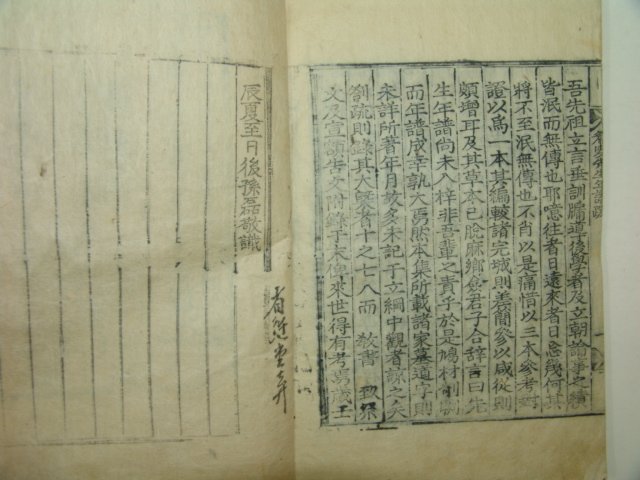 吾先祖立言垂訓牖道後學者及立朝論事之蹟
皆泯而無傳也耶噫往者日遠來者日急幾何其
將不至泯無傳也不肖以是痛惜以三本參考對
證以爲一本其編較諸完城則差簡參以咸從則
頗增耳及其草本已脫麻鄉僉君子合辭言曰先
生年譜尚未入梓非吾輩之責乎於是鳩材剞劂
而年譜成幸孰大焉然本集所載諸家墓道字則
未詳所著年月故多未記于立綱中觀者諒之矣
劄疏則錄其大槩者十之七八而 敎書
文及宣額告文附錄于末俾來世得有考焉歲壬
辰夏至日後孫磊敬識